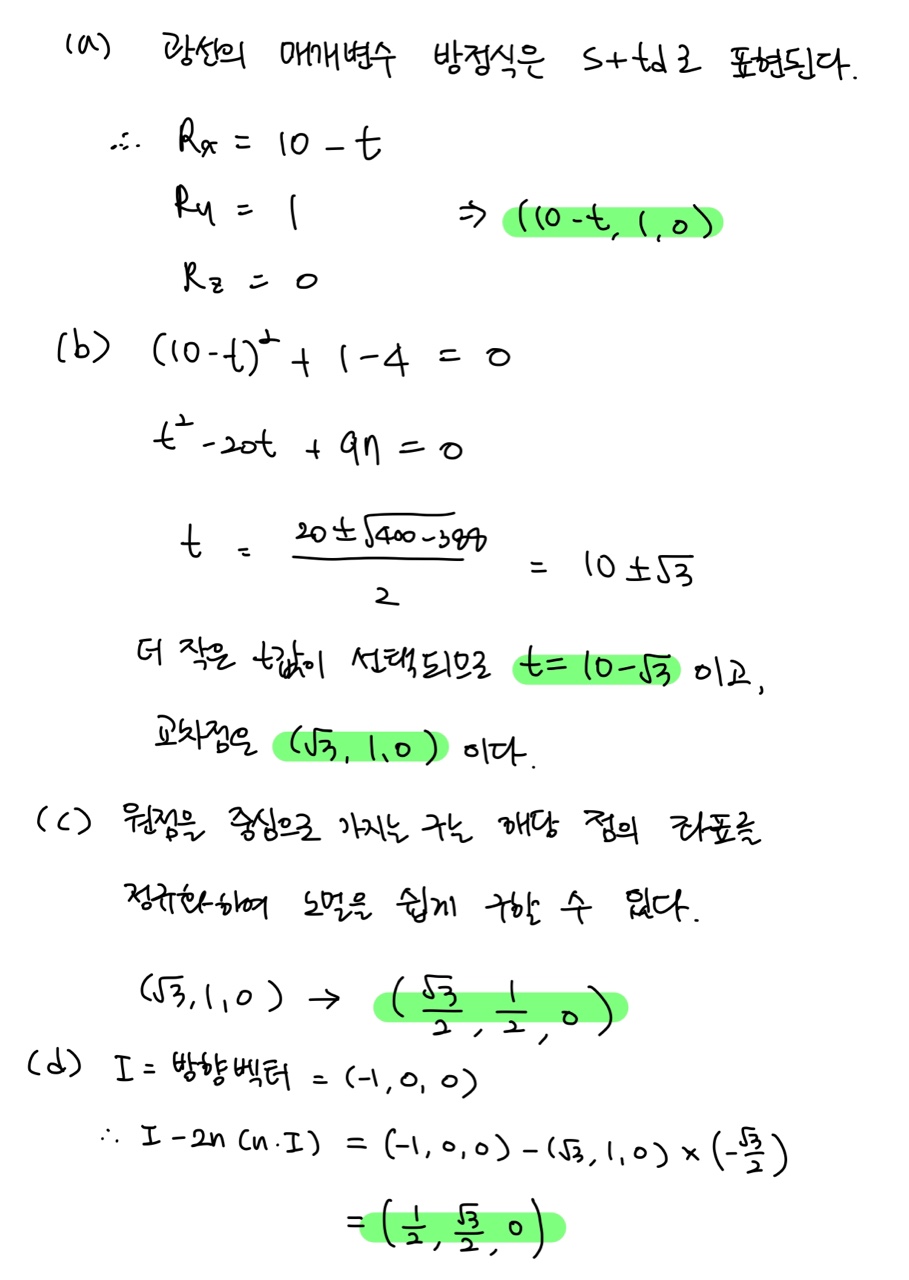 (a) 광선의 매개변수 방정식은 s+td로 표현된다.
∴ Rx = 10 - t
Ry = 1 ⇒ (10-t, 1, 0)
Rz = 0
(b) (10-t)² + 1-4 = 0
t² - 20t + 97 = 0
t = (20±√(400-388))/2 = 10±√3
더 작은 t값이 선택되므로 t= 10-√3 이고,
교차점은 (√3, 1, 0) 이다.
(c) 원점을 중심으로 가지는 구는 해당 점의 좌표를
정규화하여 노멀을 쉽게 구할 수 있다.
(√3, 1, 0) → (√3/2, 1/2, 0)
(d) I = 방향벡터 = (-1, 0, 0)
∴ I - 2n (n·I) = (-1, 0, 0) - (√3, 1, 0) × (-√3/2)
= (1/2, √3/2, 0)